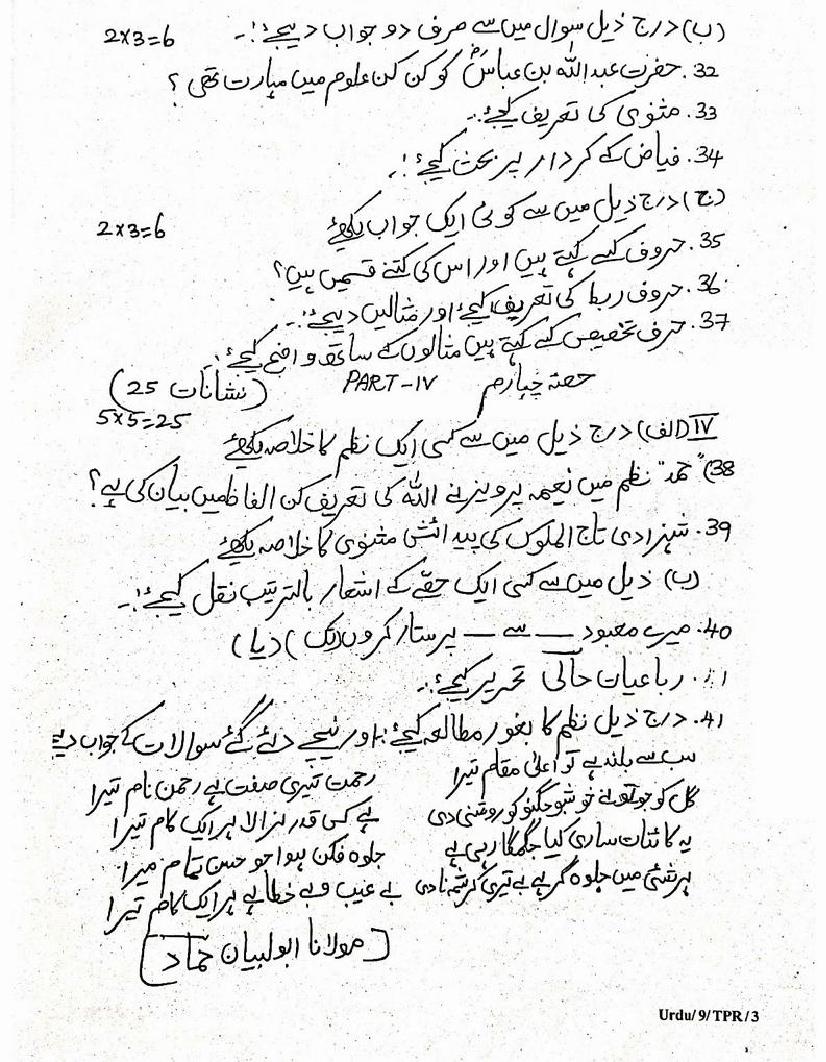 (ب) درج ذیل سوال میں سے صرف دو جواب دیجئے:۔ 2x3=6
32. حضرت عبداللہ بن عباسؓ کو کن کن علوم میں مہارت تھی ؟
33. مثنوی کی تعریف کیجئے:۔
34. فیاض کے کردار پر بحث کیجئے:۔
(ج) درج ذیل میں سے کوئی ایک جواب لکھئے 2x3=6
35. حروف کسے کہتے ہیں اور اس کی کتنے قسمیں ہیں؟
36. حروف ربط کی تعریف کیجئے اور مثالیں دیجئے:۔
37. حرف تخصیص کسے کہتے ہیں مثالوں کے ساتھ واضح کیجئے:۔
حصّہ چہارم PART-IV (نشانات 25)
5x5=25
IV (الف) درج ذیل میں سے کسی ایک نظم کا خلاصہ لکھئے
38) "حمد" نظم میں نعیمہ پروین نے اللہ کی تعریف کن الفاظ میں بیان کی ہے؟
39. شہزادی تاج الملوک کی پیدائش مثنوی کا خلاصہ لکھئے
(ب) ذیل میں سے کسی ایک حصّے کے اشعار بالترتیب نقل کیجئے:۔
40. میرے معبود ___ سے ___ پرستار کروں تک (یا)
رباعیات حالی تحریر کیجئے:۔
41. درج ذیل نظم کا بغور مطالعہ کیجئے اور نیچے دئے گئے سوالات کے جواب دیجئے
سب سے بلند ہے تو اعلیٰ مقام تیرا رحمت تیری صفت ہے رحمن نام تیرا
گل کو جو تو نے خوشبو جگنو کو روشنی دی ہے کس قدر نرالا ہر ایک کام تیرا
یہ کائنات ساری کیا جگمگا رہی ہے جلوہ فکن ہوا جو حسن تمام میرا
ہر شئی میں جلوہ گر ہے تیری کرشمہ بے عیب و بے خطا ہے ہر ایک کام تیرا
[مولانا ابولبیان حماد]
Urdu/9/TPR/3